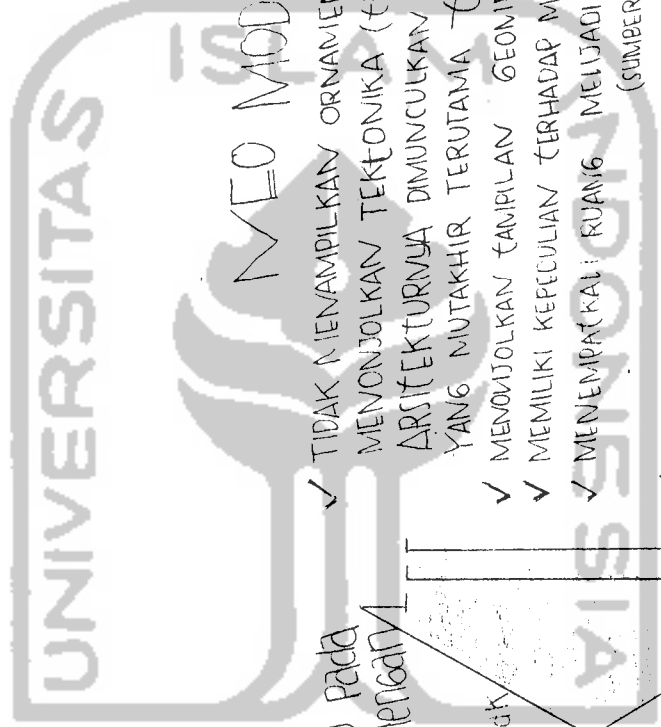 UNIVERSITAS
ISLAM
INDONESIA
NEO MOD
✓ TIDAK MENAMPILKAN ORNAMEN
MENONJOLKAN TEKTONIKA (
ARSITEKTURNYA DIMUNCULKAN
YANG MUTAKHIR TERUTAMA
✓ MENONJOLKAN TAMPILAN GEOM
✓ MEMILIKI KEPEDULIAN TERHADAP
✓ MENEMPATKAN RUANG MENJADI
(SUMBER
Pada
dengan